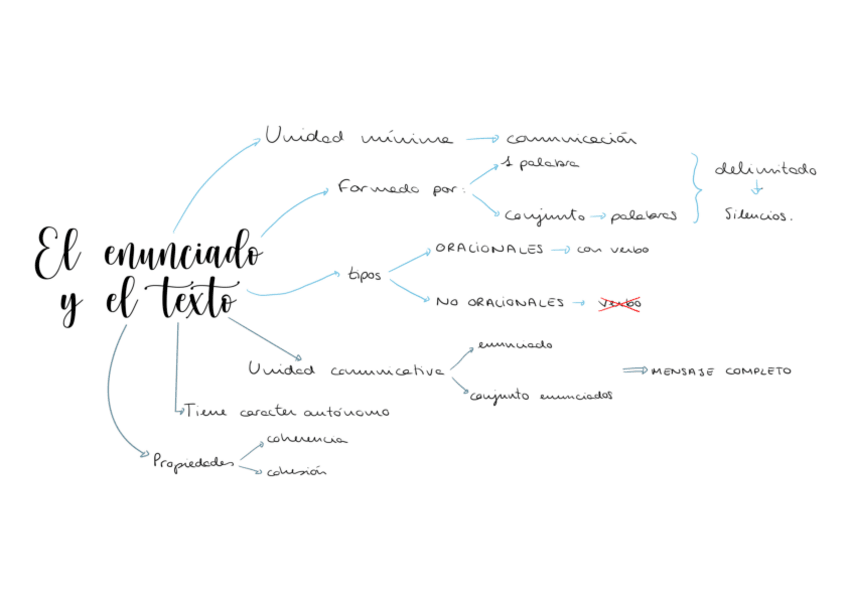 El enunciado
y el texto
Unidad mínima → comunicación
Formado por:
1 palabra
conjunto → palabras
delimitado
↓
Silencios.
tipos
ORACIONALES → con verbo
NO ORACIONALES → verbo
Unidad comunicativa
enunciado
conjunto enunciados
⇒ MENSAJE COMPLETO
Tiene caracter autónomo
Propiedades
coherencia
cohesión